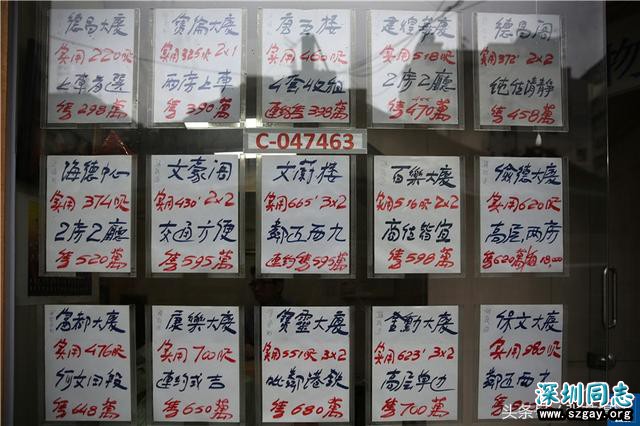 德昌大廈
實用220呎
上車首選
售298萬
寶倫大廈
實用325呎 2x1
兩房上車
售390萬
唐五樓
實用460呎
4套收租
連約售398萬
建煌華廈
實用518呎
2房2廳
售470萬
德昌閣
實用372' 2x2
純住清靜
售458萬
C-047463
海德中心
實用374呎
2房2廳
售520萬
文豪閣
實用430' 2x2
交通方便
售595萬
文蔚樓
實用665' 3x2
鄰近西九
連約售595萬
百樂大廈
實用516呎 2x2
商住皆宜
售598萬
儉德大廈
實用620呎
高層兩房
售620萬 租18,000
富都大廈
實用476呎
行政四段
售648萬
康樂大廈
實用700呎
連約或吉
售650萬
寶靈大廈
實用551呎 3x2
毗鄰港鐵
售680萬
金勳大廈
實用623' 3x2
高層單边
售700萬
保文大廈
實用980呎
鄰近西九
售
头条
深圳同志
www.szgay.org